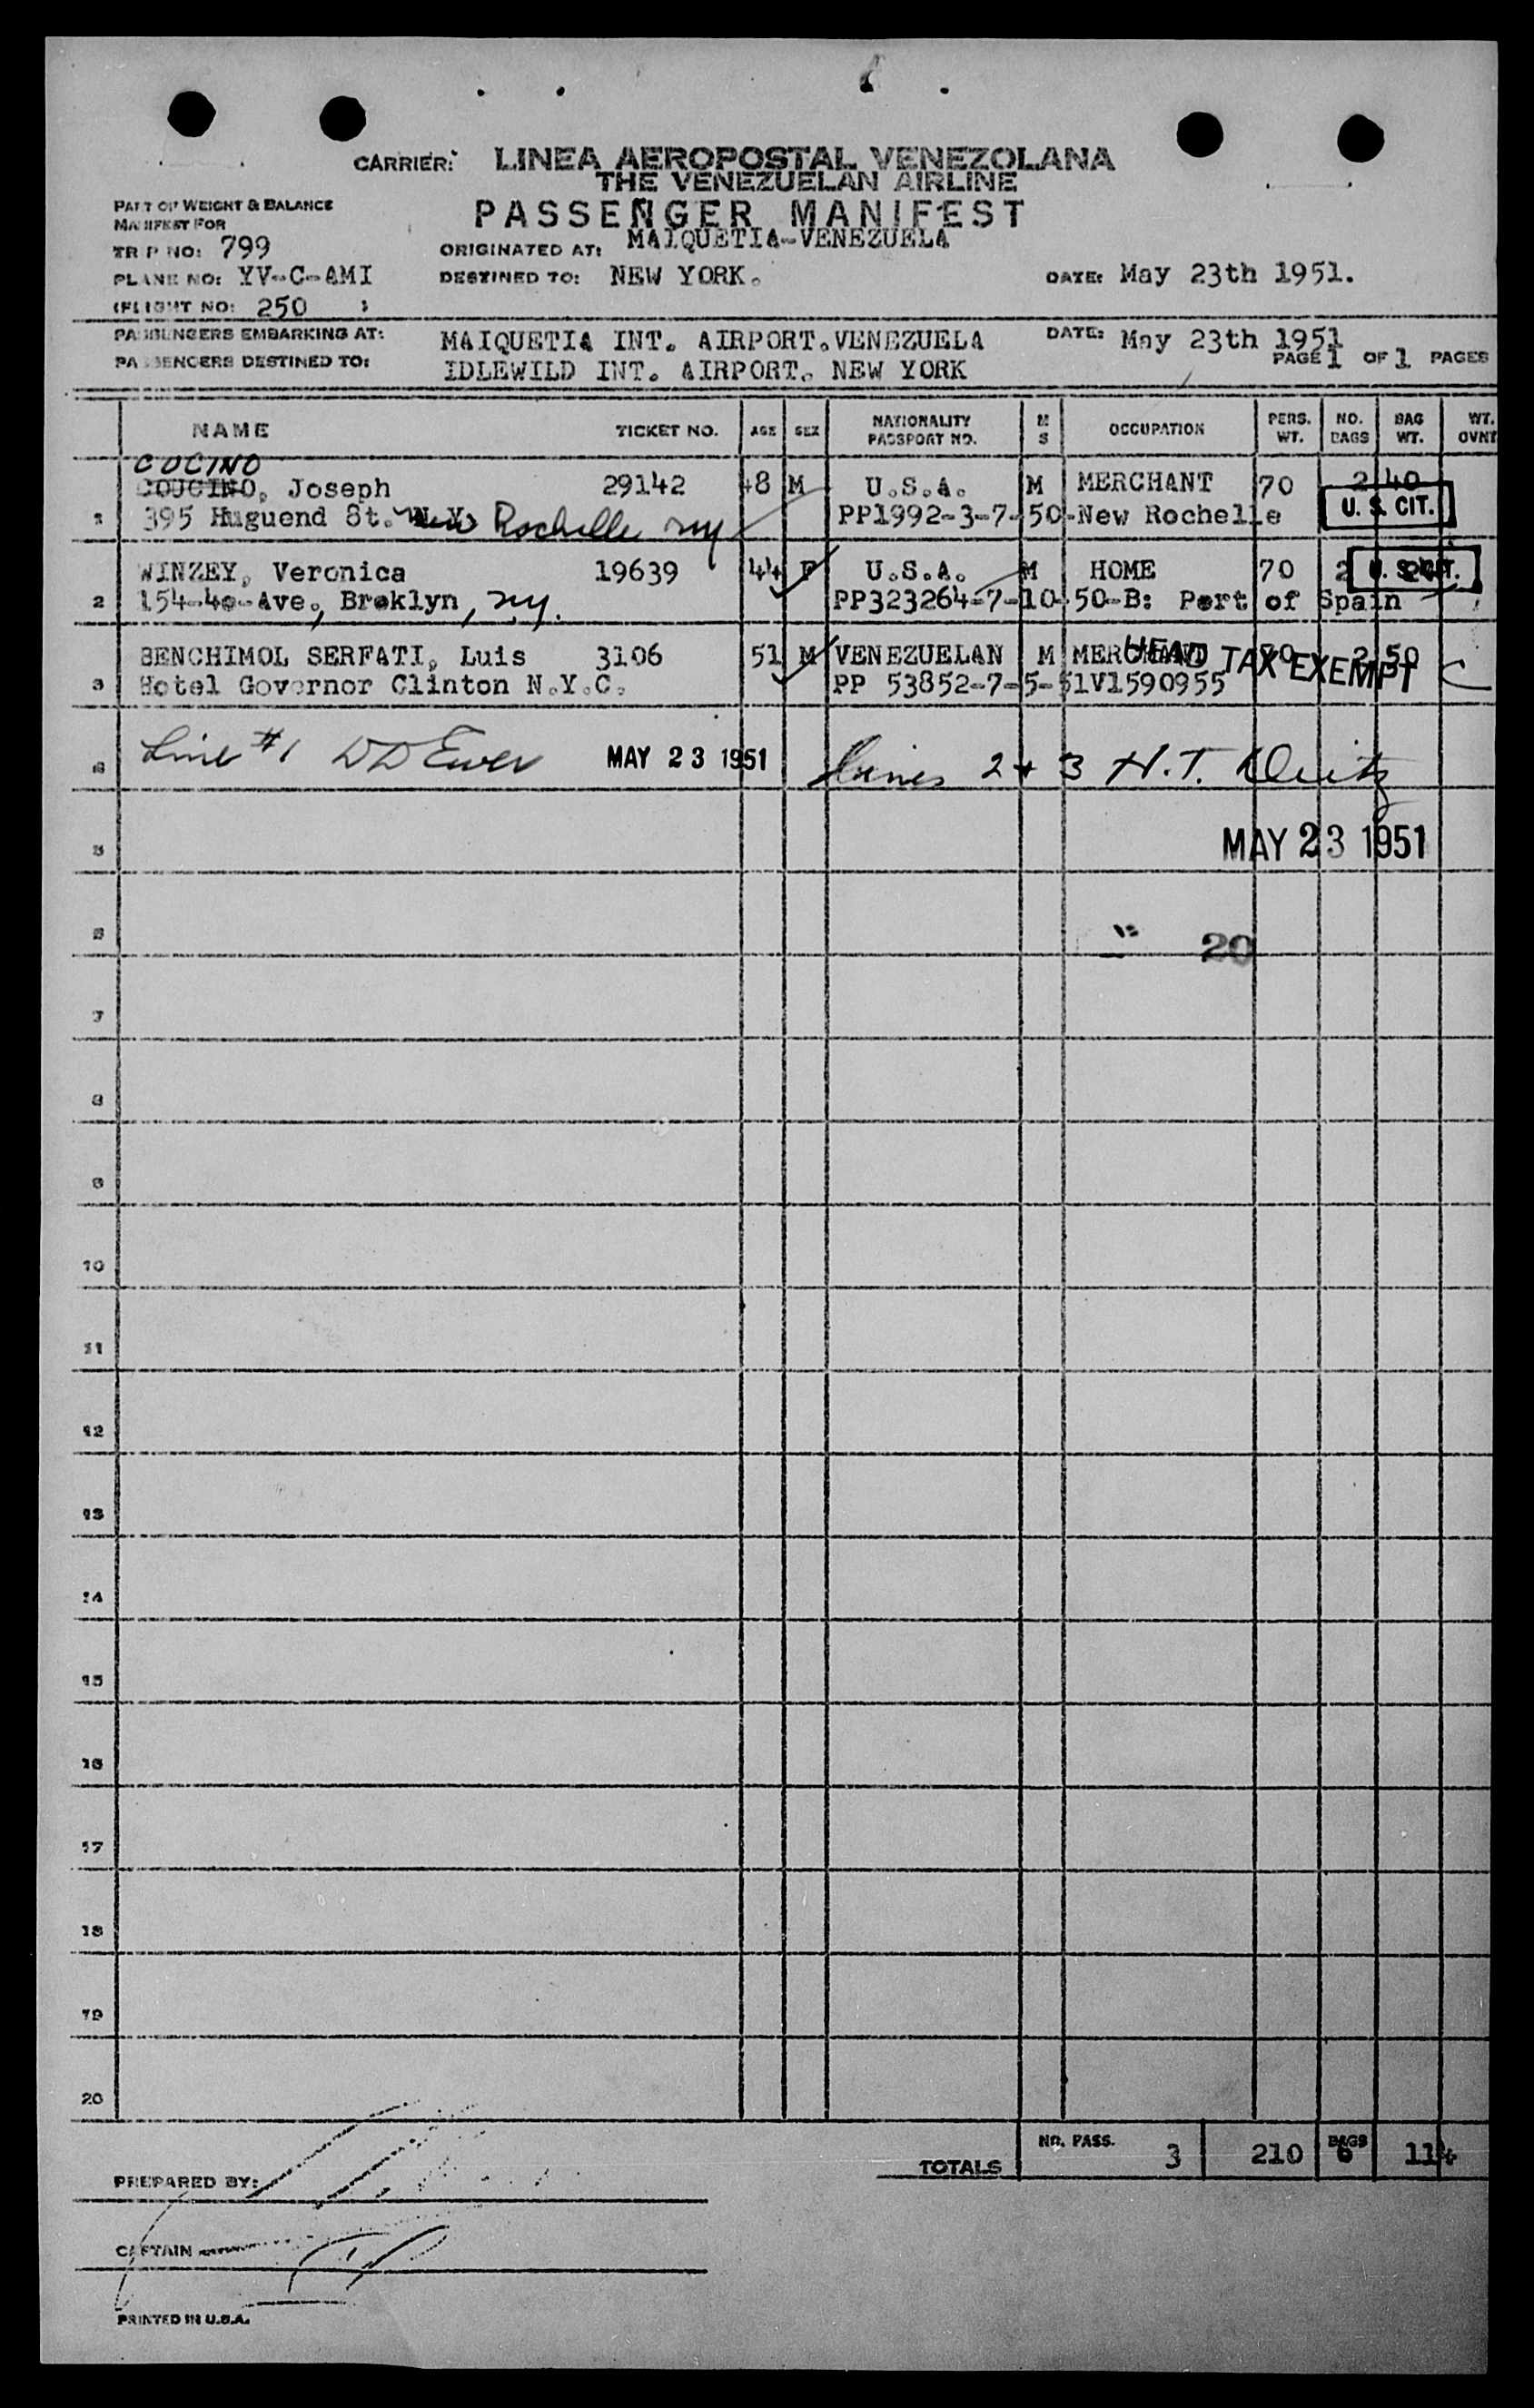 CARRIER: LINEA AEROPOSTAL VENEZOLANA
THE VENEZUELAN AIRLINE
PASSENGER MANIFEST
PART OF WEIGHT & BALANCE
MANIFEST FOR
TRIP NO: 799
ORIGINATED AT: MAIQUETIA-VENEZUELA
PLANE NO: YV-C-AMI
DESTINED TO: NEW YORK.
DATE: May 23th 1951.
(FLIGHT NO: 250 )
PASSENGERS EMBARKING AT: MAIQUETIA INT. AIRPORT.VENEZUELA DATE: May 23th 1951
PASSENGERS DESTINED TO: IDLEWILD INT. AIRPORT. NEW YORK PAGE 1 OF 1 PAGES
NAME TICKET NO. AGE SEX NATIONALITY PASSPORT NO. M S OCCUPATION PERS. WT. NO. BAGS BAG WT. WT. OVNT
COCINO
COUCINO, Joseph 29142 48 M U.S.A. M MERCHANT 70 2 40
1 395 Huguend St. N.Y. New Rochelle NY PP1992-3-7-50-New Rochelle U.S. CIT.
WINZEY, Veronica 19639 44 F U.S.A. M HOME 70 2 24 U.S. CIT.
2 154-40-Ave., Broklyn, N.Y. PP323264-7-10-50-B: Port of Spain
BENCHIMOL SERFATI, Luis 3106 51 M VENEZUELAN M MERCHANT 70 2 50
HEAD TAX EXEMPT C
3 Hotel Governor Clinton N.Y.C. PP 53852-7-5-51V1590955
4 Line #1 DD Ewer MAY 23 1951 Lines 2 + 3 H.T. Deitz
MAY 23 1951
5
6 20
7
8
9
10
11
12
13
14
15
16
17
18
19
20
TOTALS NO. PASS. 3 210 BAGS 6 114
PREPARED BY:
CAPTAIN
PRINTED IN U.S.A.